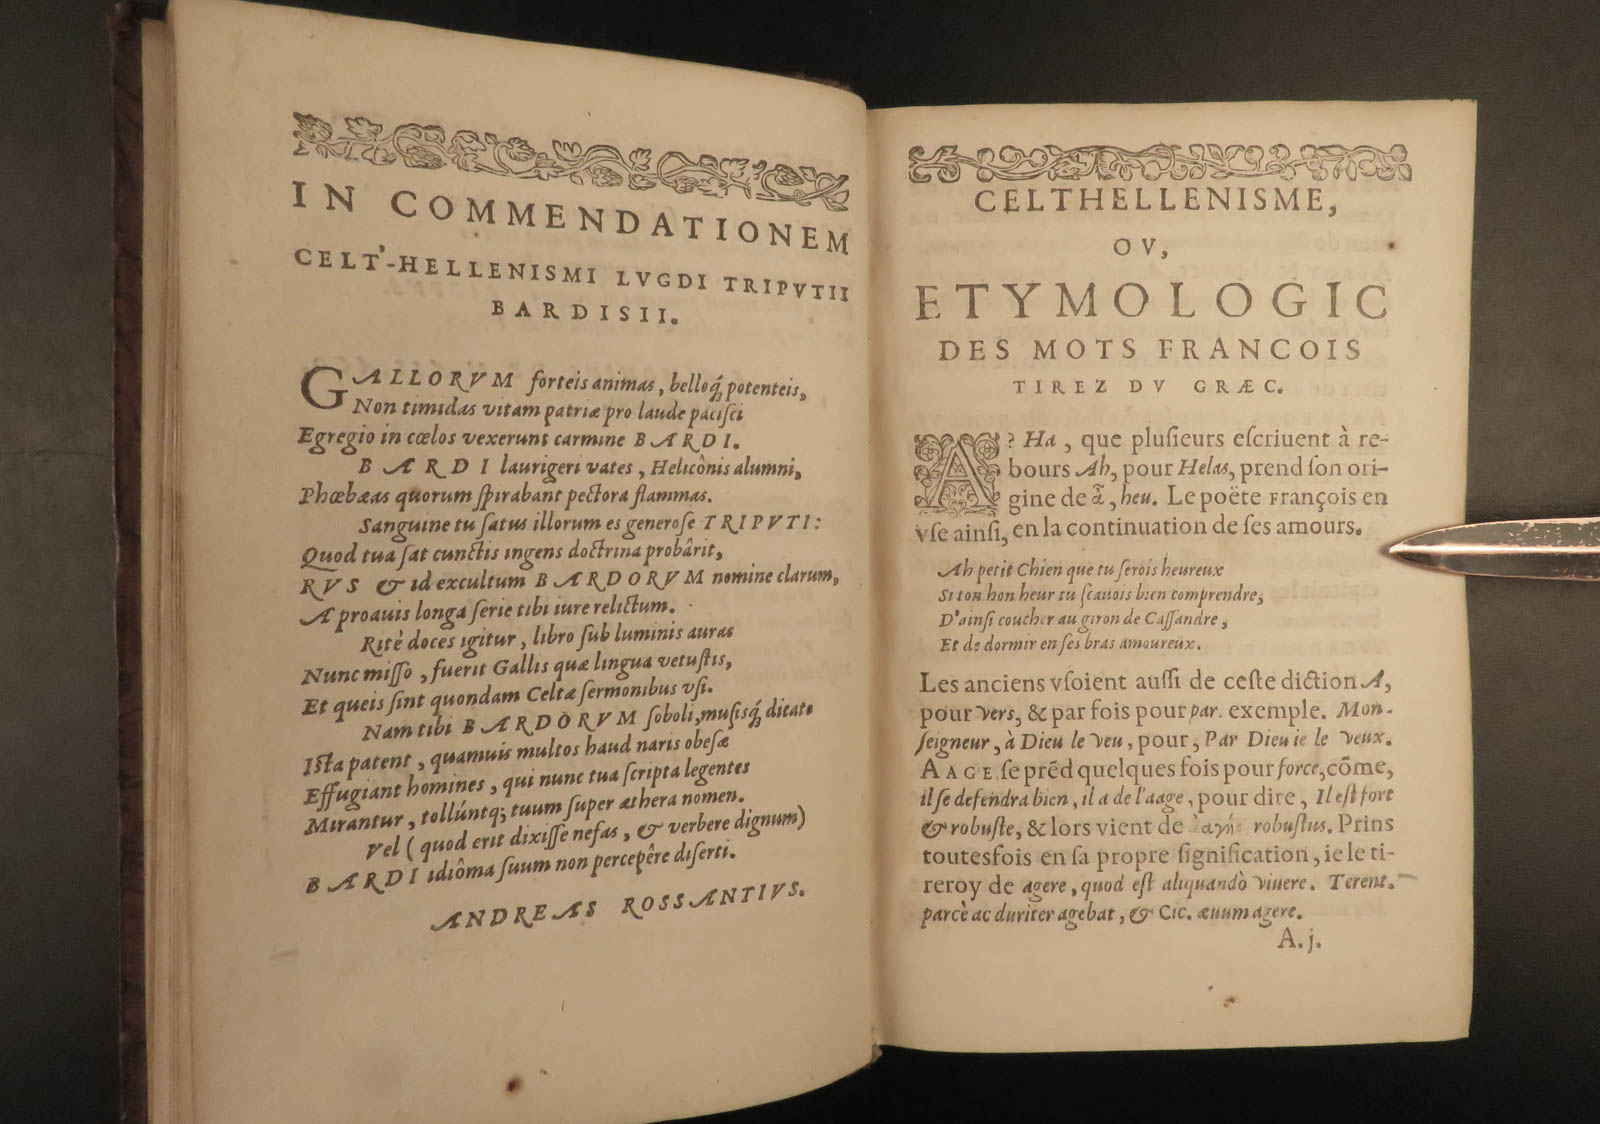 IN COMMENDATIONEM
CELT'-HELLENISMI LVGDI TRIPVTII
BARDISII.
GALLORVM forteis animas, belloq́; potenteis,
Non timidas vitam patriæ pro laude pacisci
Egregio in cœlos vexerunt carmine BARDI.
BARDI laurigeri vates, Helicônis alumni,
Phœbæas quorum ſpirabant pectora flammas.
Sanguine tu ſatus illorum es generoſe TRIPVTI:
Quod tua ſat cunctis ingens doctrina probârit,
RVS & id excultum BARDORVM nomine clarum,
A proauis longa ſerie tibi iure relictum.
Ritè doces igitur, libro ſub luminis auras
Nunc miſſo, fuerit Gallis quæ lingua vetuſtis,
Et queis ſint quondam Celtæ ſermonibus vſi.
Nam tibi BARDORVM ſoboli, muſisq́; dicato
Iſta patent, quamuis multos haud naris obeſæ
Effugiant homines, qui nunc tua ſcripta legentes
Mirantur, tollúntq; tuum ſuper æthera nomen.
Vel (quod erit dixiſſe nefas, & verbere dignum)
BARDI idiôma ſuum non percepêre diſerti.
ANDREAS ROSSANTIVS.
CELTHELLENISME,
OV,
ETYMOLOGIC
DES MOTS FRANCOIS
TIREZ DV GRÆC.
A? Ha, que pluſieurs eſcriuent à re-
bours Ah, pour Helas, prend ſon ori-
gine de ἆ, heu. Le poëte François en
vſe ainſi, en la continuation de ſes amours.
Ah petit Chien que tu ſerois heureux
Si ton bon heur tu ſcauois bien comprendre,
D'ainſi coucher au giron de Caſſandre,
Et de dormir en ſes bras amoureux.
Les anciens vſoient auſſi de ceſte diction A,
pour vers, & par fois pour par. exemple. Mon-
ſeigneur, à Dieu le veu, pour, Par Dieu ie le veux.
AAGE ſe prẽd quelques fois pour force, cõme,
il ſe defendra bien, il a de l'aage, pour dire, Il eſt fort
& robuſte, & lors vient de ἀαγὴς robuſtus. Prins
toutesfois en ſa propre ſignification, ie le ti-
reroy de agere, quod eſt aliquandò viuere. Terent.
parcè ac duriter agebat, & Cic. æuum agere.
A.j.